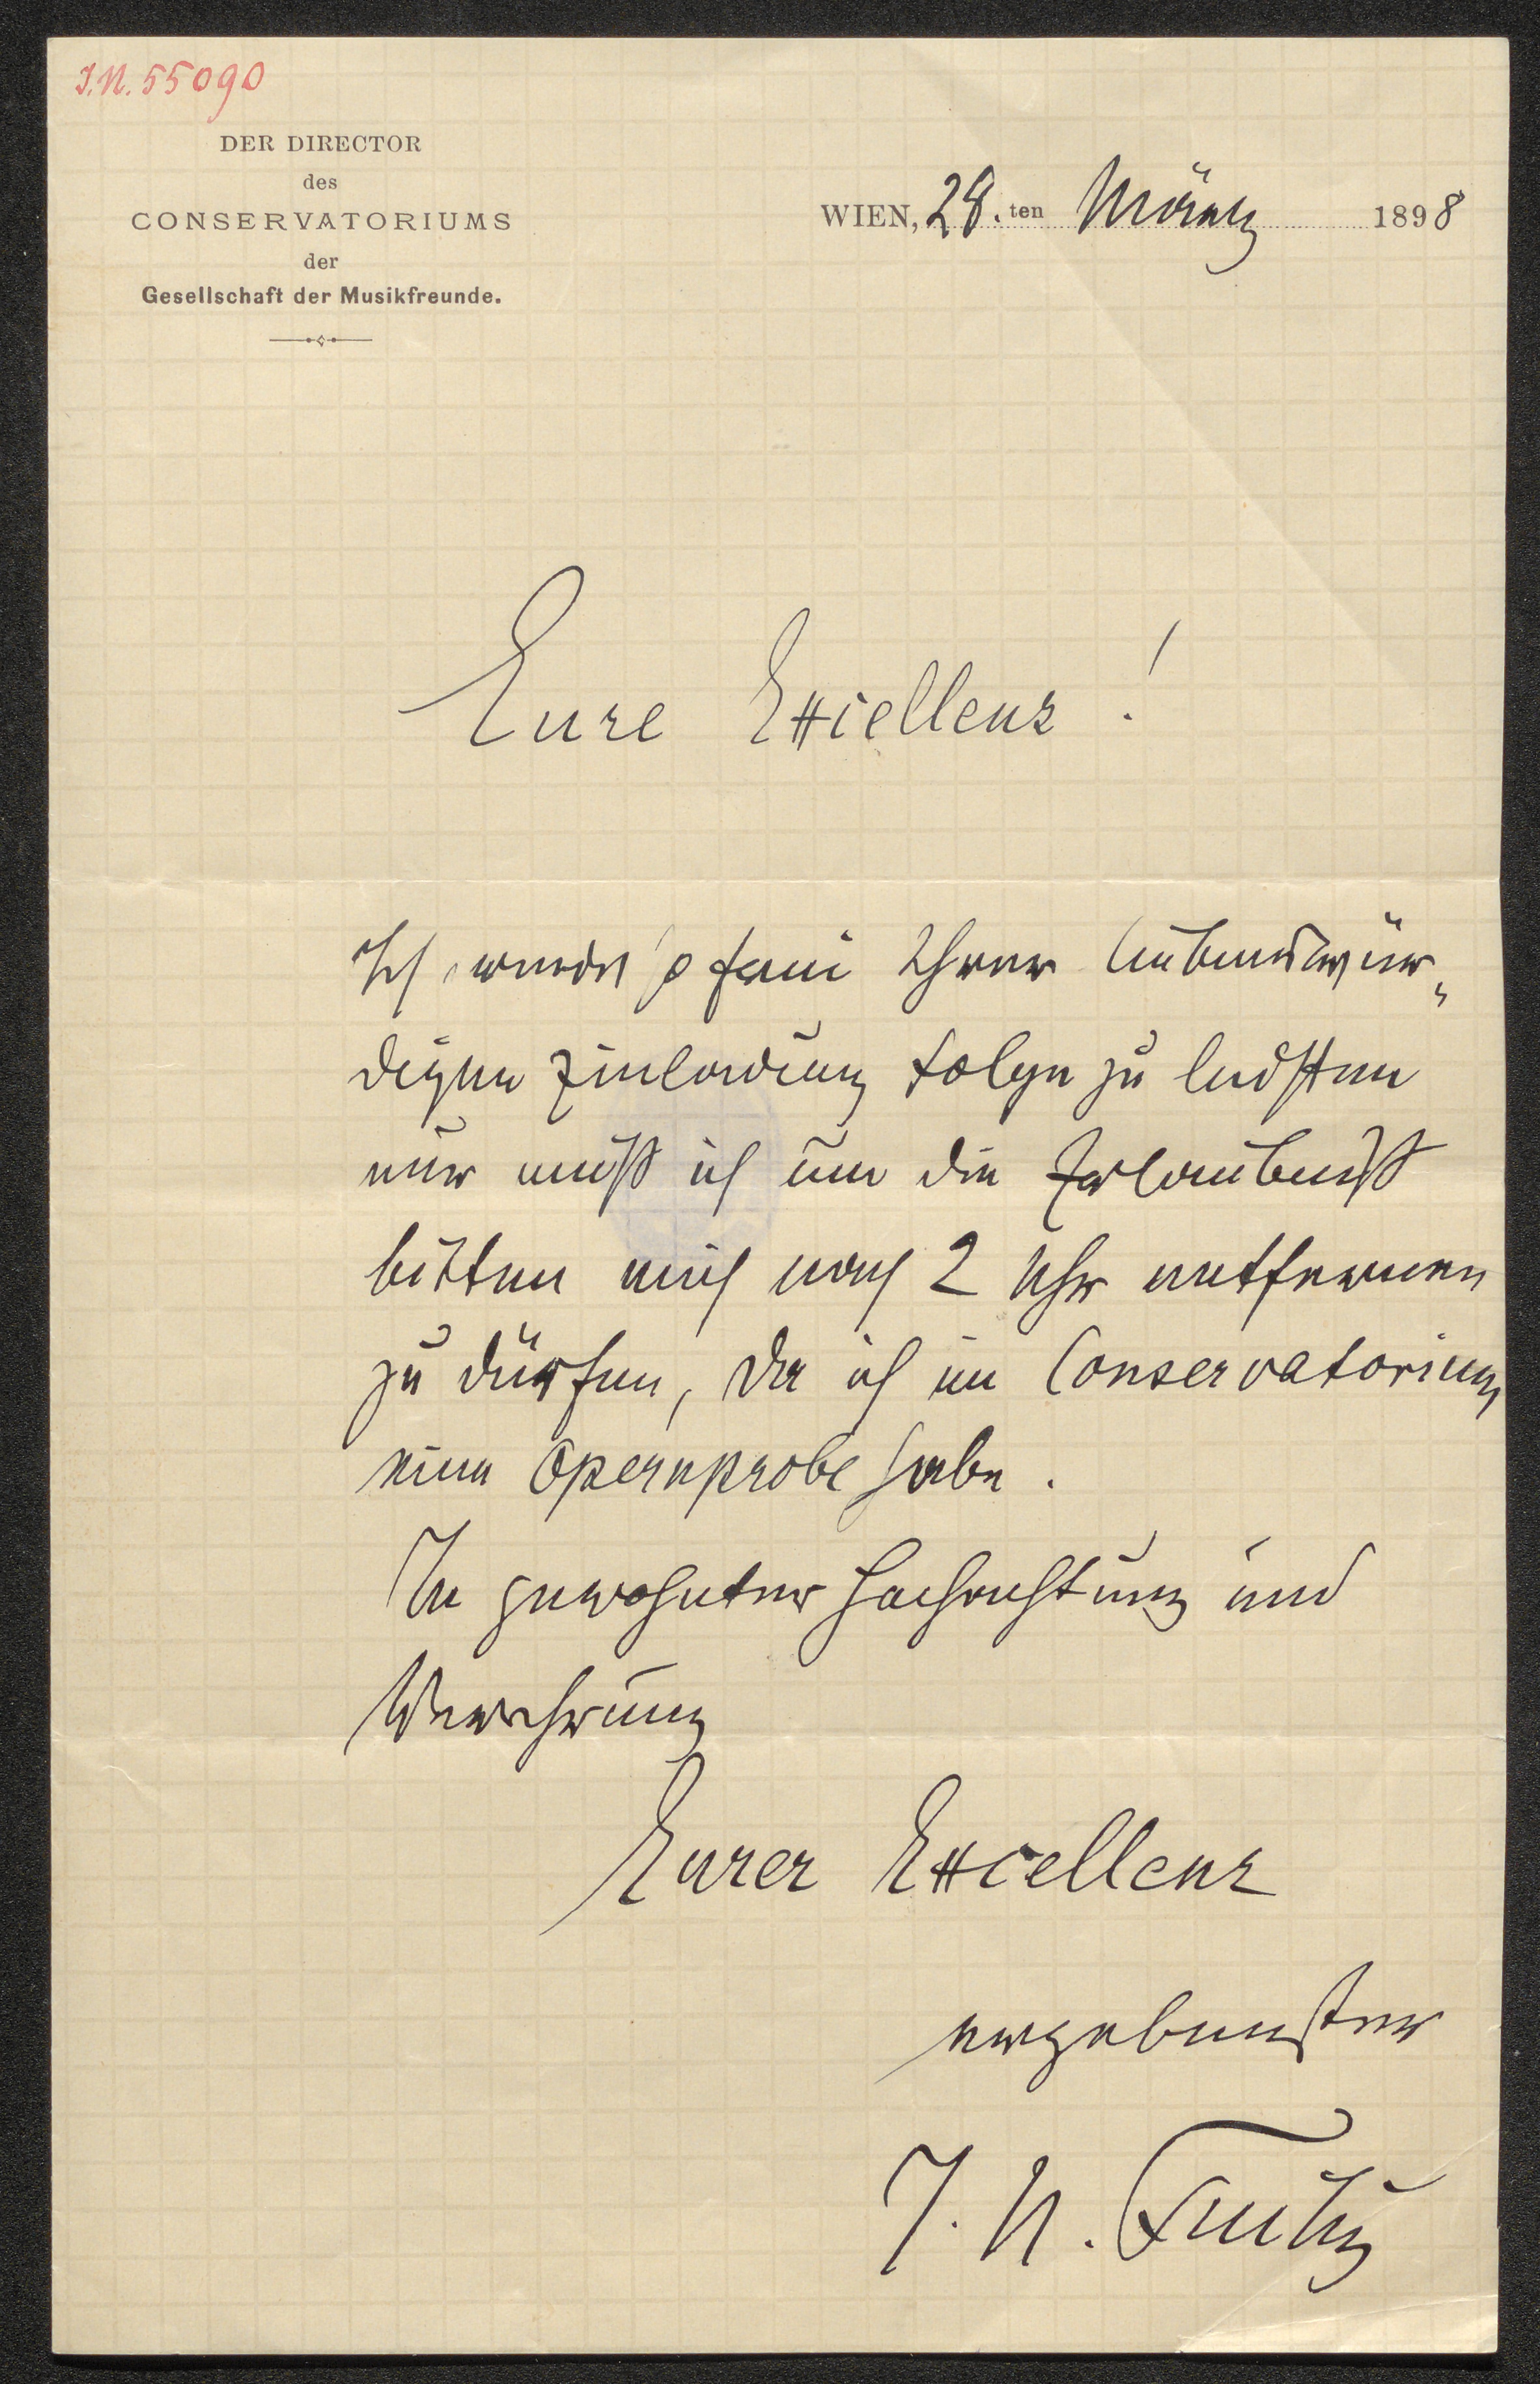 J.N. 55090
DER DIRECTOR
des
CONSERVATORIUMS
der
Gesellschaft der Musikfreunde.
WIEN, 28. ten März 1898
Eure Excellenz!
Ich werde so frei Ihrer liebenswür„
digen Einladung Folge zu leisten
nur muß ich um die Erlaubniß
bitten mich nach 2 Uhr entfernen
zu dürfen, da ich im Conservatorium
eine Opernprobe habe.
In gewohnter Hochachtung und
Verehrung
Eurer Excellenz
ergebenster
J. N. Fuchs